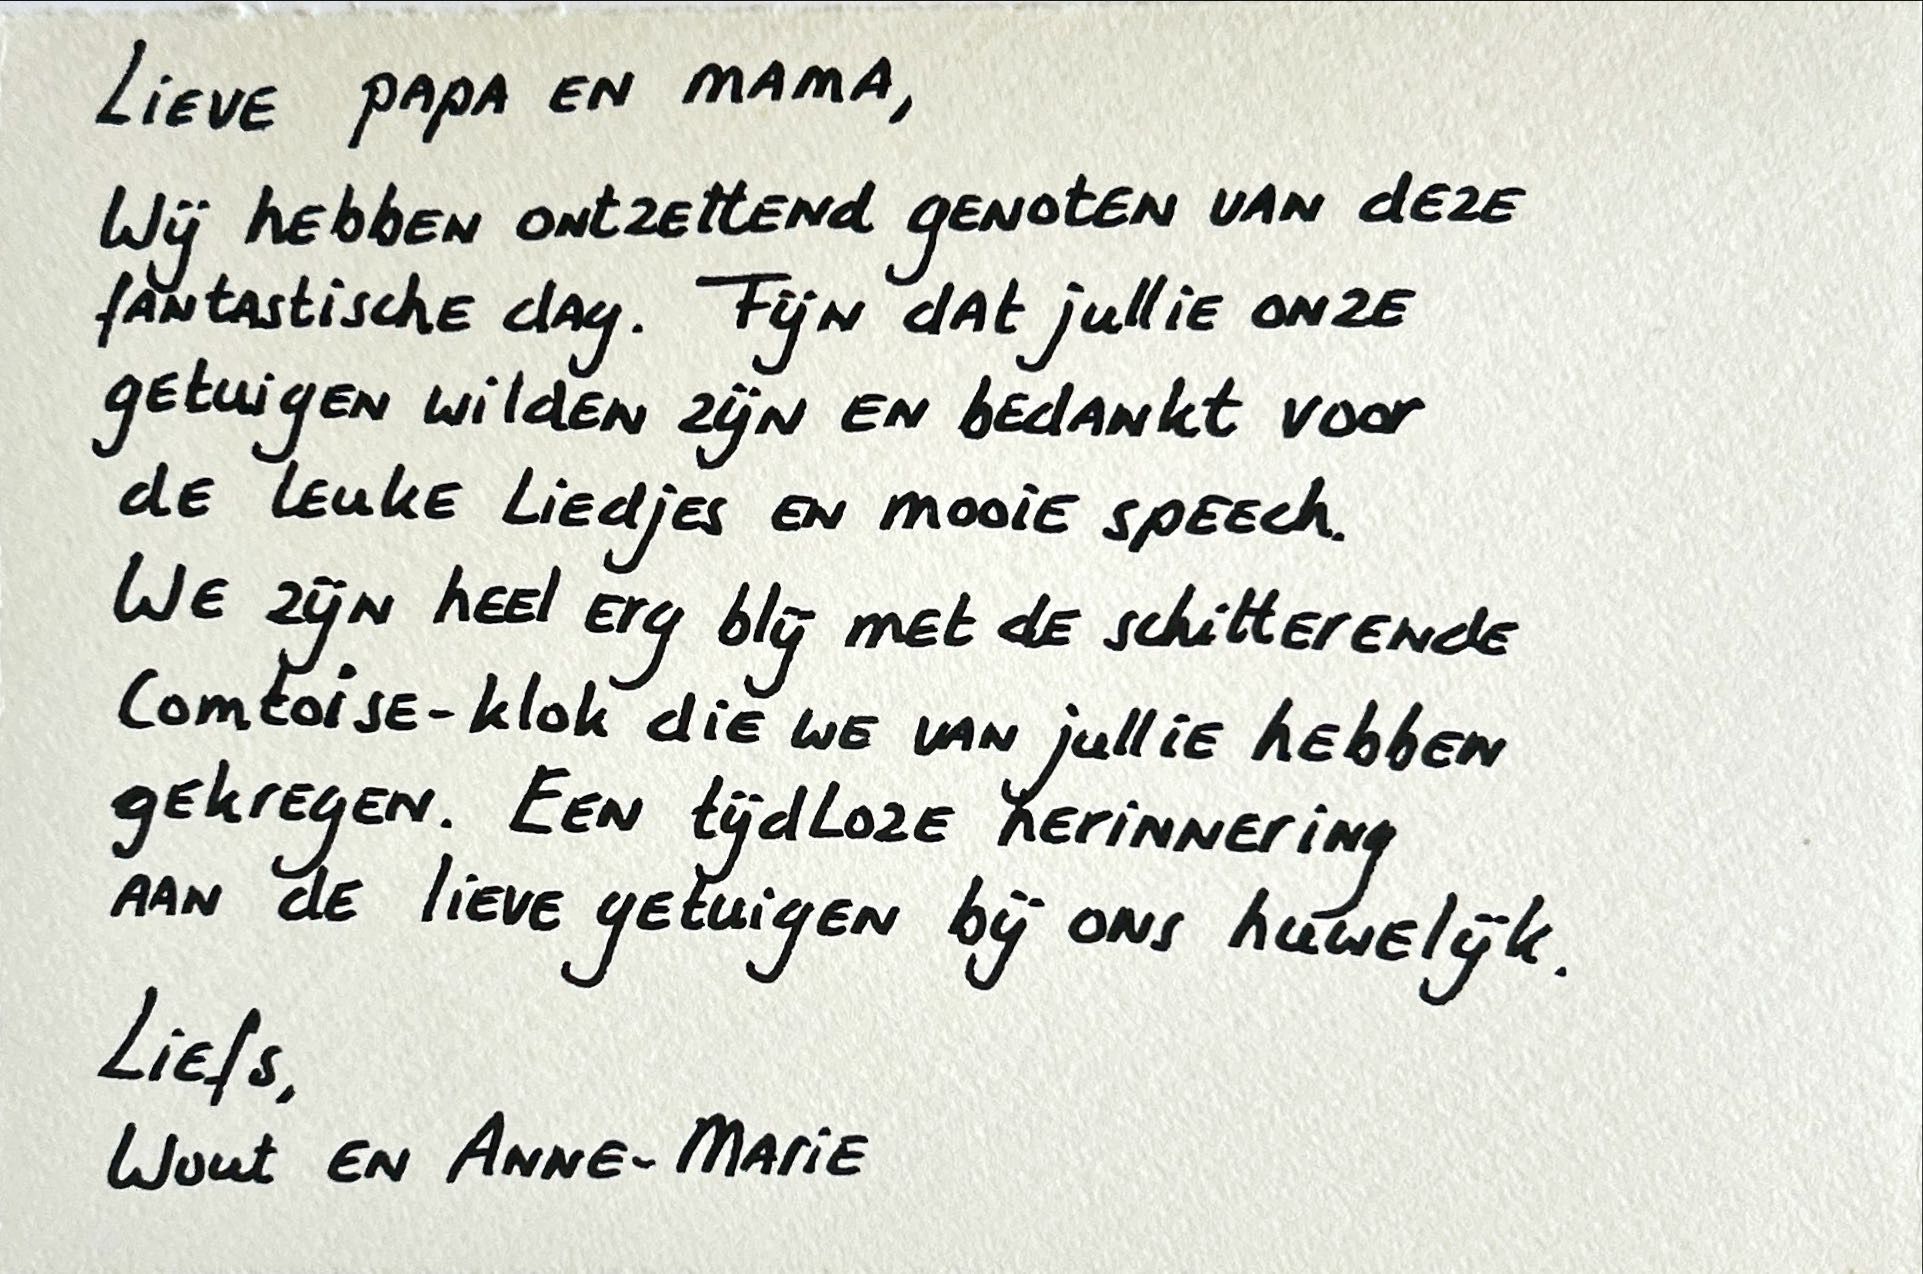 Lieve papa en mama,
Wij hebben ontzettend genoten van deze
fantastische dag. Fijn dat jullie onze
getuigen wilden zijn en bedankt voor
de leuke liedjes en mooie speech.
We zijn heel erg blij met de schitterende
Comtoise-klok die we van jullie hebben
gekregen. Een tijdloze herinnering
aan de lieve getuigen bij ons huwelijk.
Liefs,
Wout en Anne-Marie